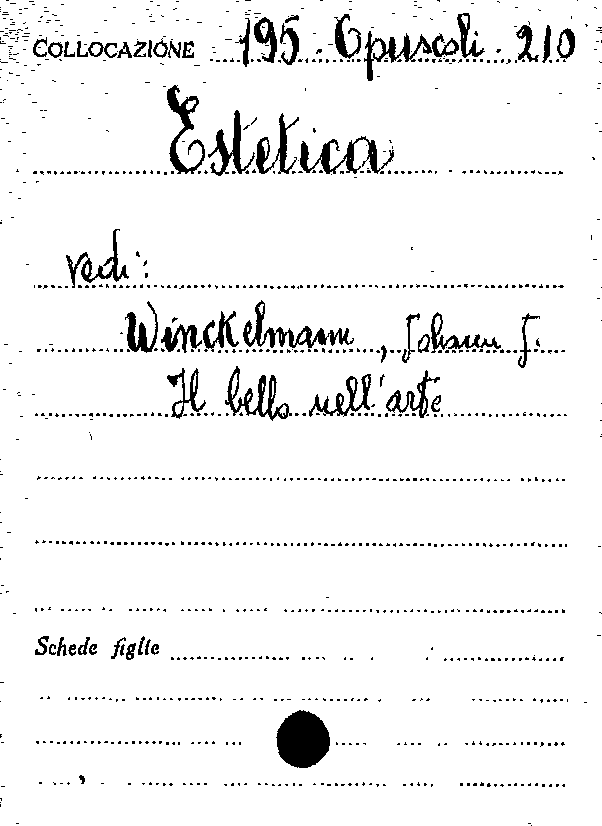 COLLOCAZIONE 195. Opuscoli. 210
Estetica
vedi:
Winckelmann, Johann J.
Il bello nell'arte
Schede figlie